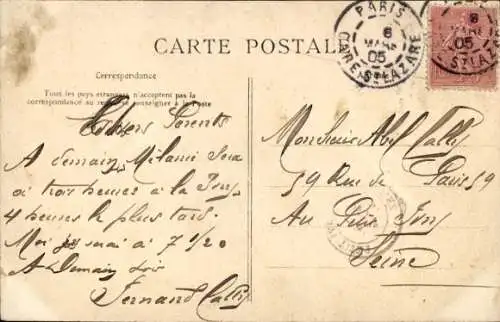 PARIS
6
MARS
05
GARE St LAZARE
CARTE POSTALE
Correspondance
Tous les pays étrangers n'acceptent pas la
correspondance au recto se renseigner à la Poste
Chers Parents
A demain, Mélanie sera
à trois heures à la
4 heures le plus tard.
Moi j'y serai à 7 1/20
A Demain soir
Fernand
Monsieur Abel
59 Rue de Paris 59
Au
Seine